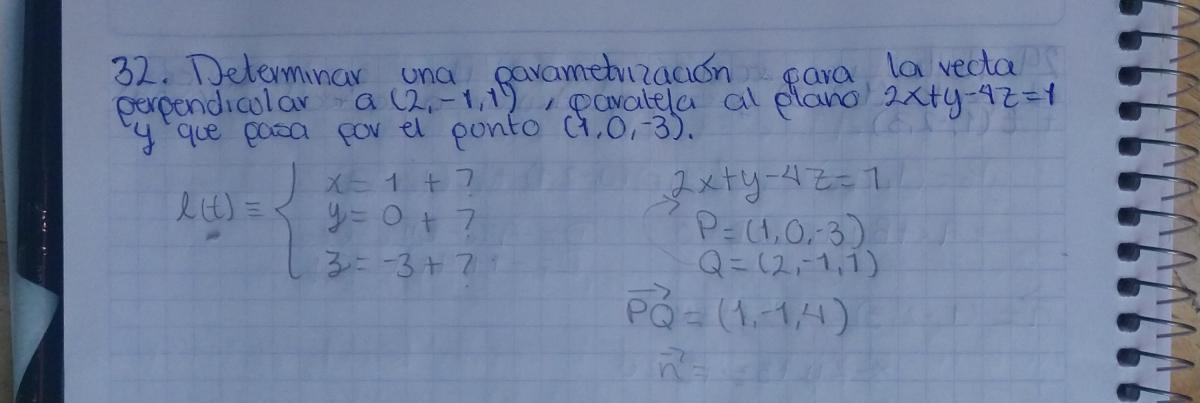 32. Determinar una parametrización para la recta
perpendicular a (2,-1,1), paralela al plano 2x+y-4z=1
y que pasa por el punto (1,0,-3).
l(t) ≡ { x = 1 + ?
y = 0 + ?
z = -3 + ?
2x+y-4z=1
P=(1,0,-3)
Q=(2,-1,1)
\overrightarrow{PQ} = (1,-1,4)
\vec{n} =